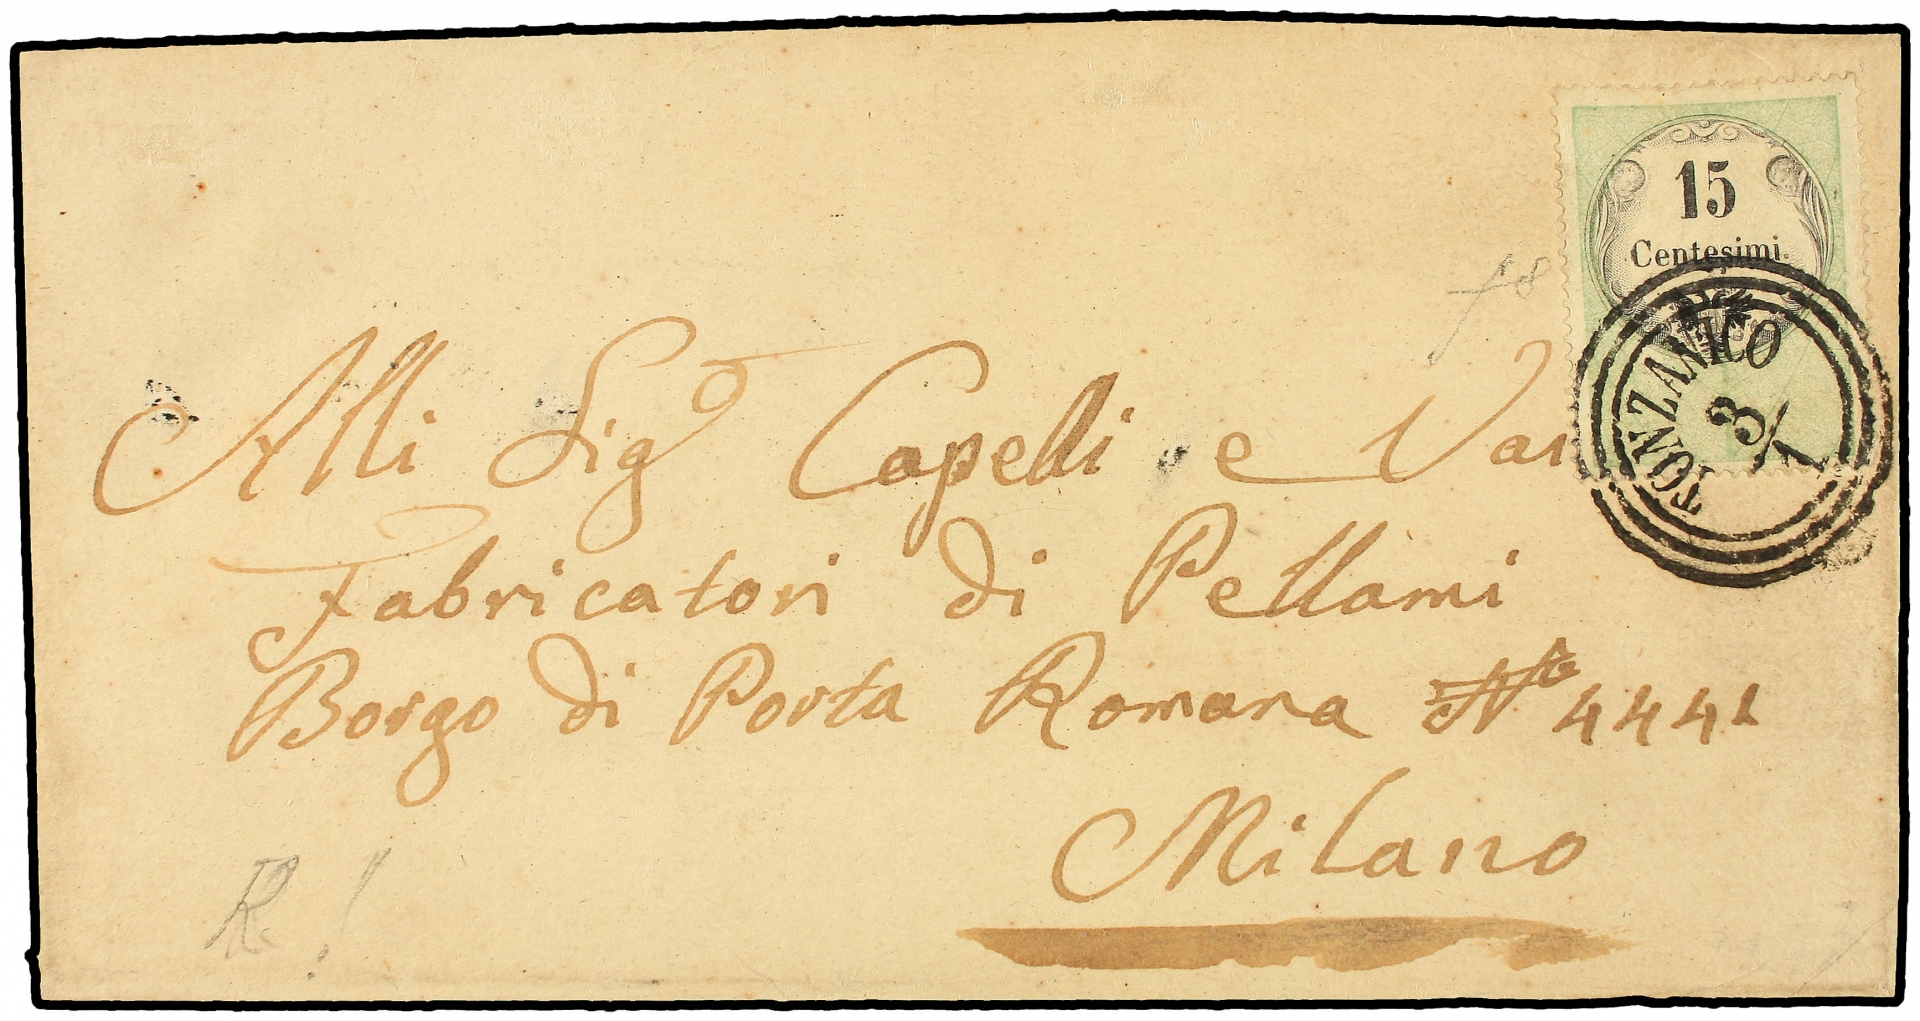 15
Centesimi.
TONZANICO
3/1
Alli Sigri Capelli e Var
Fabricatori di Pellami
Borgo di Porta Romana No 4441
Milano
R!